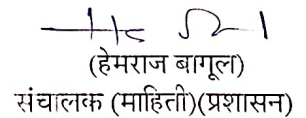 (हेमराज बागूल)
संचालक (माहिती)(प्रशासन)